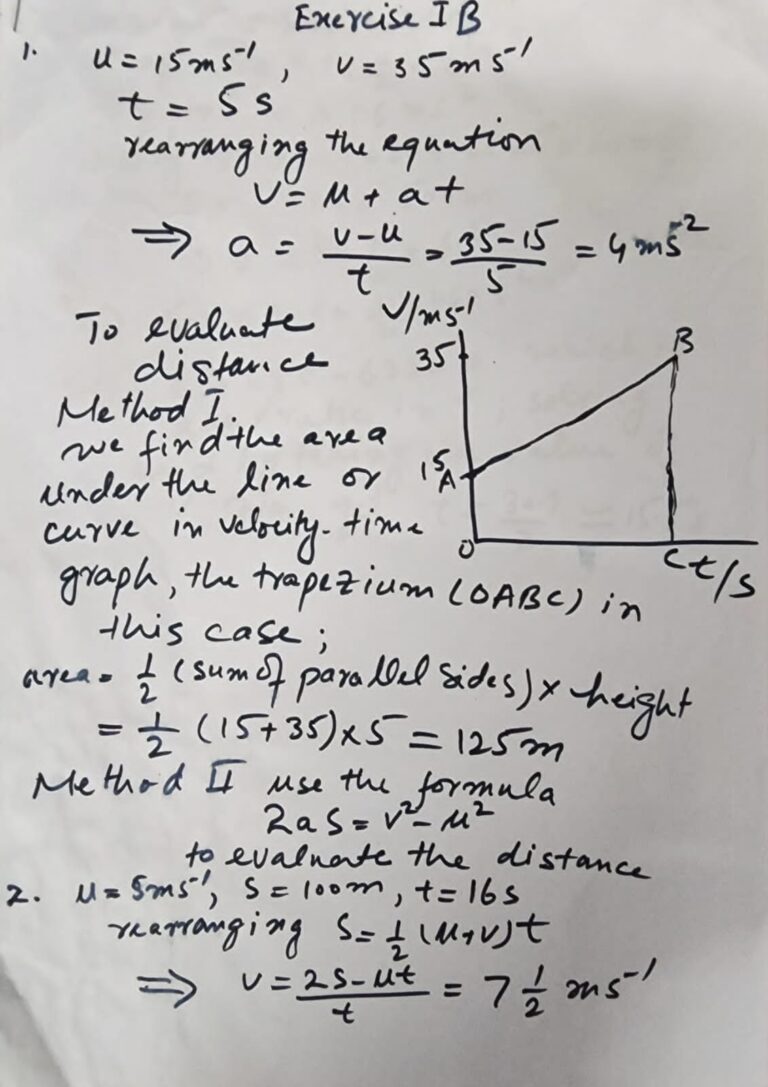 Exercise I B
1. u = 15 ms⁻¹, v = 35 ms⁻¹
t = 5 s
rearranging the equation
v = u + at
⇒ a = (v-u)/t = (35-15)/5 = 4 ms⁻²
To evaluate
distance
Method I.
we find the area
under the line or
curve in velocity-time
graph, the trapezium (OABC) in
this case;
V/ms⁻¹
35
B
15
A
O
C
t/s
area = 1/2 (sum of parallel sides) × height
= 1/2 (15+35)×5 = 125 m
Method II use the formula
2as = v² - u²
to evaluate the distance
2. u = 5ms⁻¹, S = 100m, t = 16s
rearranging S = 1/2 (u+v)t
⇒ v = (2s-ut)/t = 7 1/2 ms⁻¹